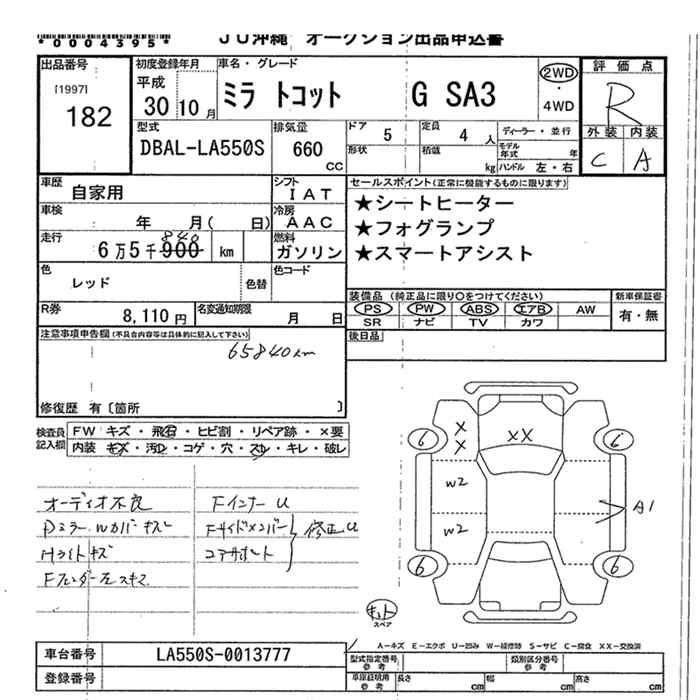 *0004395*
JU沖縄 オークション出品申込書
出品番号
[1997]
182
初度登録年月
平成
30 10 月
車名・グレード
ミラ トコット G SA3
2WD
・
4WD
評価点
R
外装 内装
C A
型式
DBAL-LA550S
排気量
660
CC
ドア 5
形状
定員 4 人
積載 kg
ディーラー・並行
モデル年式 年
ハンドル 左・右
車歴
自家用
シフト
IAT
車検
年 月( 日)
冷房
AAC
走行
840
6万5千900 km
燃料
ガソリン
色
レッド
色替
色コード
R券
8,110円
名変通知期限
月 日
セールスポイント(正常に機能するものに限ります)
★シートヒーター
★フォグランプ
★スマートアシスト
装備品 (純正品に限り○をつけてください)
PS PW ABS エアB AW
SR ナビ TV カワ
新車保証書
有・無
後日品
注意事項申告欄(不具合内容等は具体的に記入して下さい)
65840km
修復歴 有〔箇所 〕
検査員記入欄
FW キズ・飛石・ヒビ割・リペア跡・×要
内装 キズ・汚れ・コゲ・穴・スレ・キレ・破レ
オーディオ不良
Dミラー Wカバーキズ
Hライトキズ
Fフェンダー左スキマ
FインナーU
Fサイドメンバー
コアサポート
修正U
X
X
XX
6
6
W2
W2
A1
6
6
キット
スペア
A-キズ E-エクボ U-凹み W-補修跡 S-サビ C-腐食 XX-交換済
車台番号 LA550S-0013777
登録番号
型式指定番号
参考
類別区分番号
参考
車庫証明用
参考
長さ cm 幅 cm 高さ cm